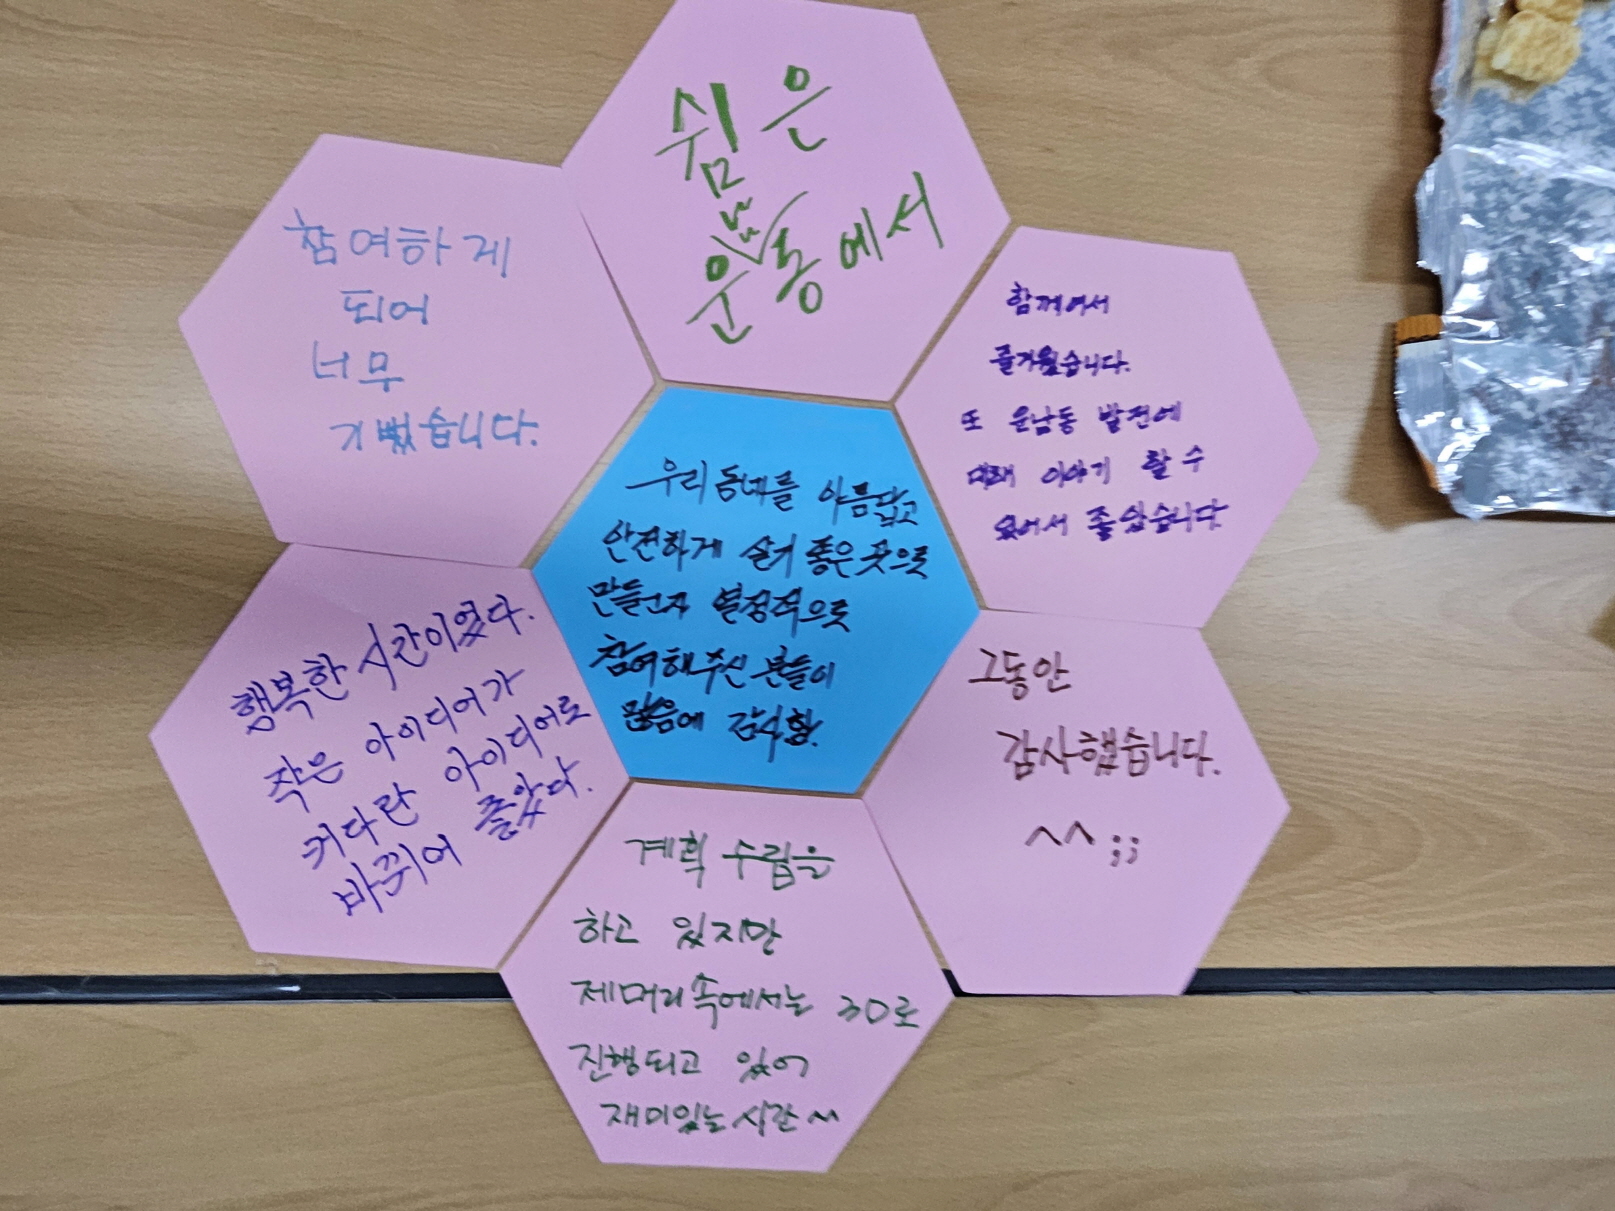 쉼은
운남동에서
참여하게
되어
너무
기뻤습니다.
함께여서
즐거웠습니다.
또 운남동 발전에
대해 이야기 할 수
있어서 좋았습니다.
우리동네를 아름답고
안전하게 살기 좋은 곳으로
만들고자 열정적으로
참여해주신 분들이
많음에 감사함.
행복한 시간이었다.
작은 아이디어가
커다란 아이디어로
바뀌어 좋았다.
그동안
감사했습니다.
^^;;
계획 수립을
하고 있지만
제머리속에서는 3D로
진행되고 있어
재미있는 시간 ^^